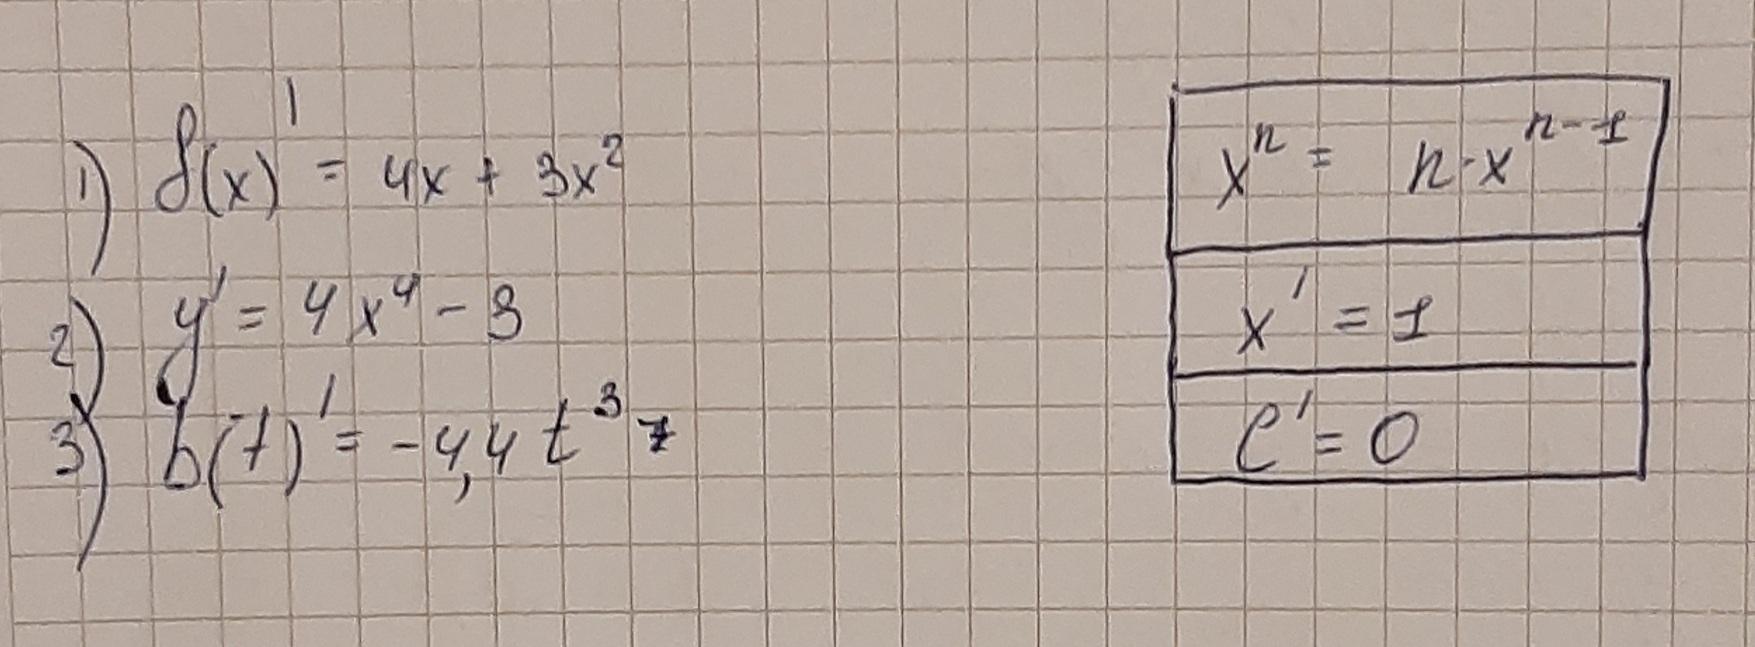 1) f(x)' = 4x + 3x²
2) y' = 4x⁴ - 3
3) b(t)' = -4,4t³
xⁿ = n·xⁿ⁻¹
x' = 1
C' = 0